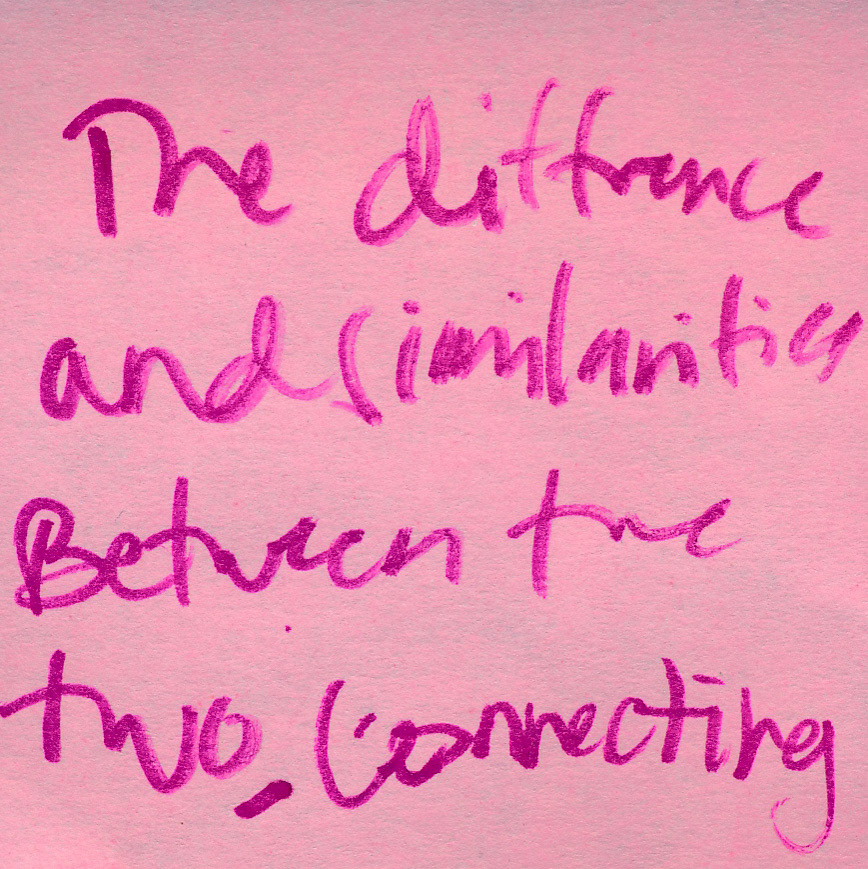 The diffrance
and similarities
Between the
two. Connecting